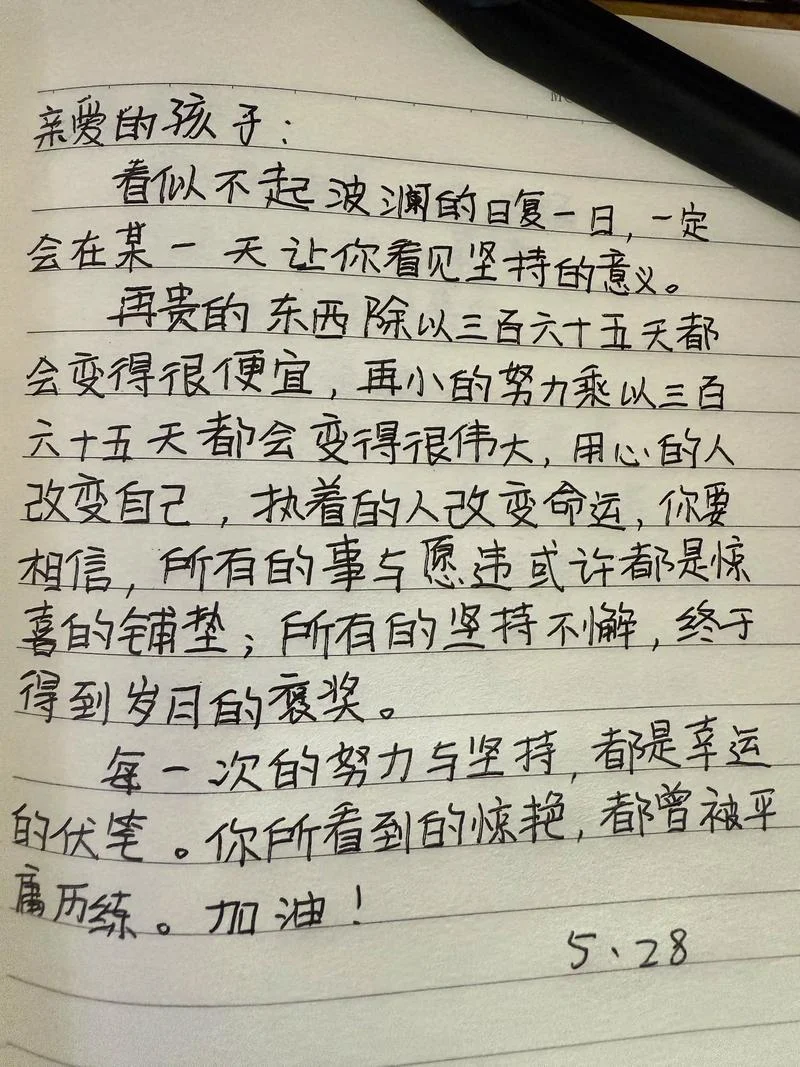 亲爱的孩子：
看似不起波澜的日复一日，一定
会在某一天让你看见坚持的意义。
再贵的东西除以三百六十五天都
会变得很便宜，再小的努力乘以三百
六十五天都会变得很伟大，用心的人
改变自己，执着的人改变命运，你要
相信，所有的事与愿违或许都是惊
喜的铺垫；所有的坚持不懈，终于
得到岁月的褒奖。
每一次的努力与坚持，都是幸运
的伏笔。你所看到的惊艳，都曾被平
庸历练。加油！
5、28